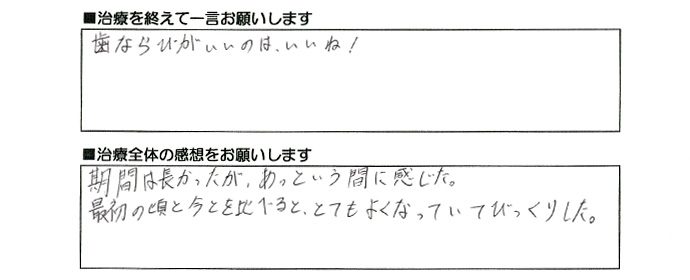 ■治療を終えて一言お願いします
歯ならびがいいのは、いいね！
■治療全体の感想をお願いします
期間は長かったが、あっという間に感じた。
最初の頃と今とを比べると、とてもよくなっていてびっくりした。